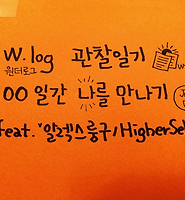 W.log 관찰일기
원더로그
00 일간 나를 만나기
feat. "알렉스룽구/HigherSel